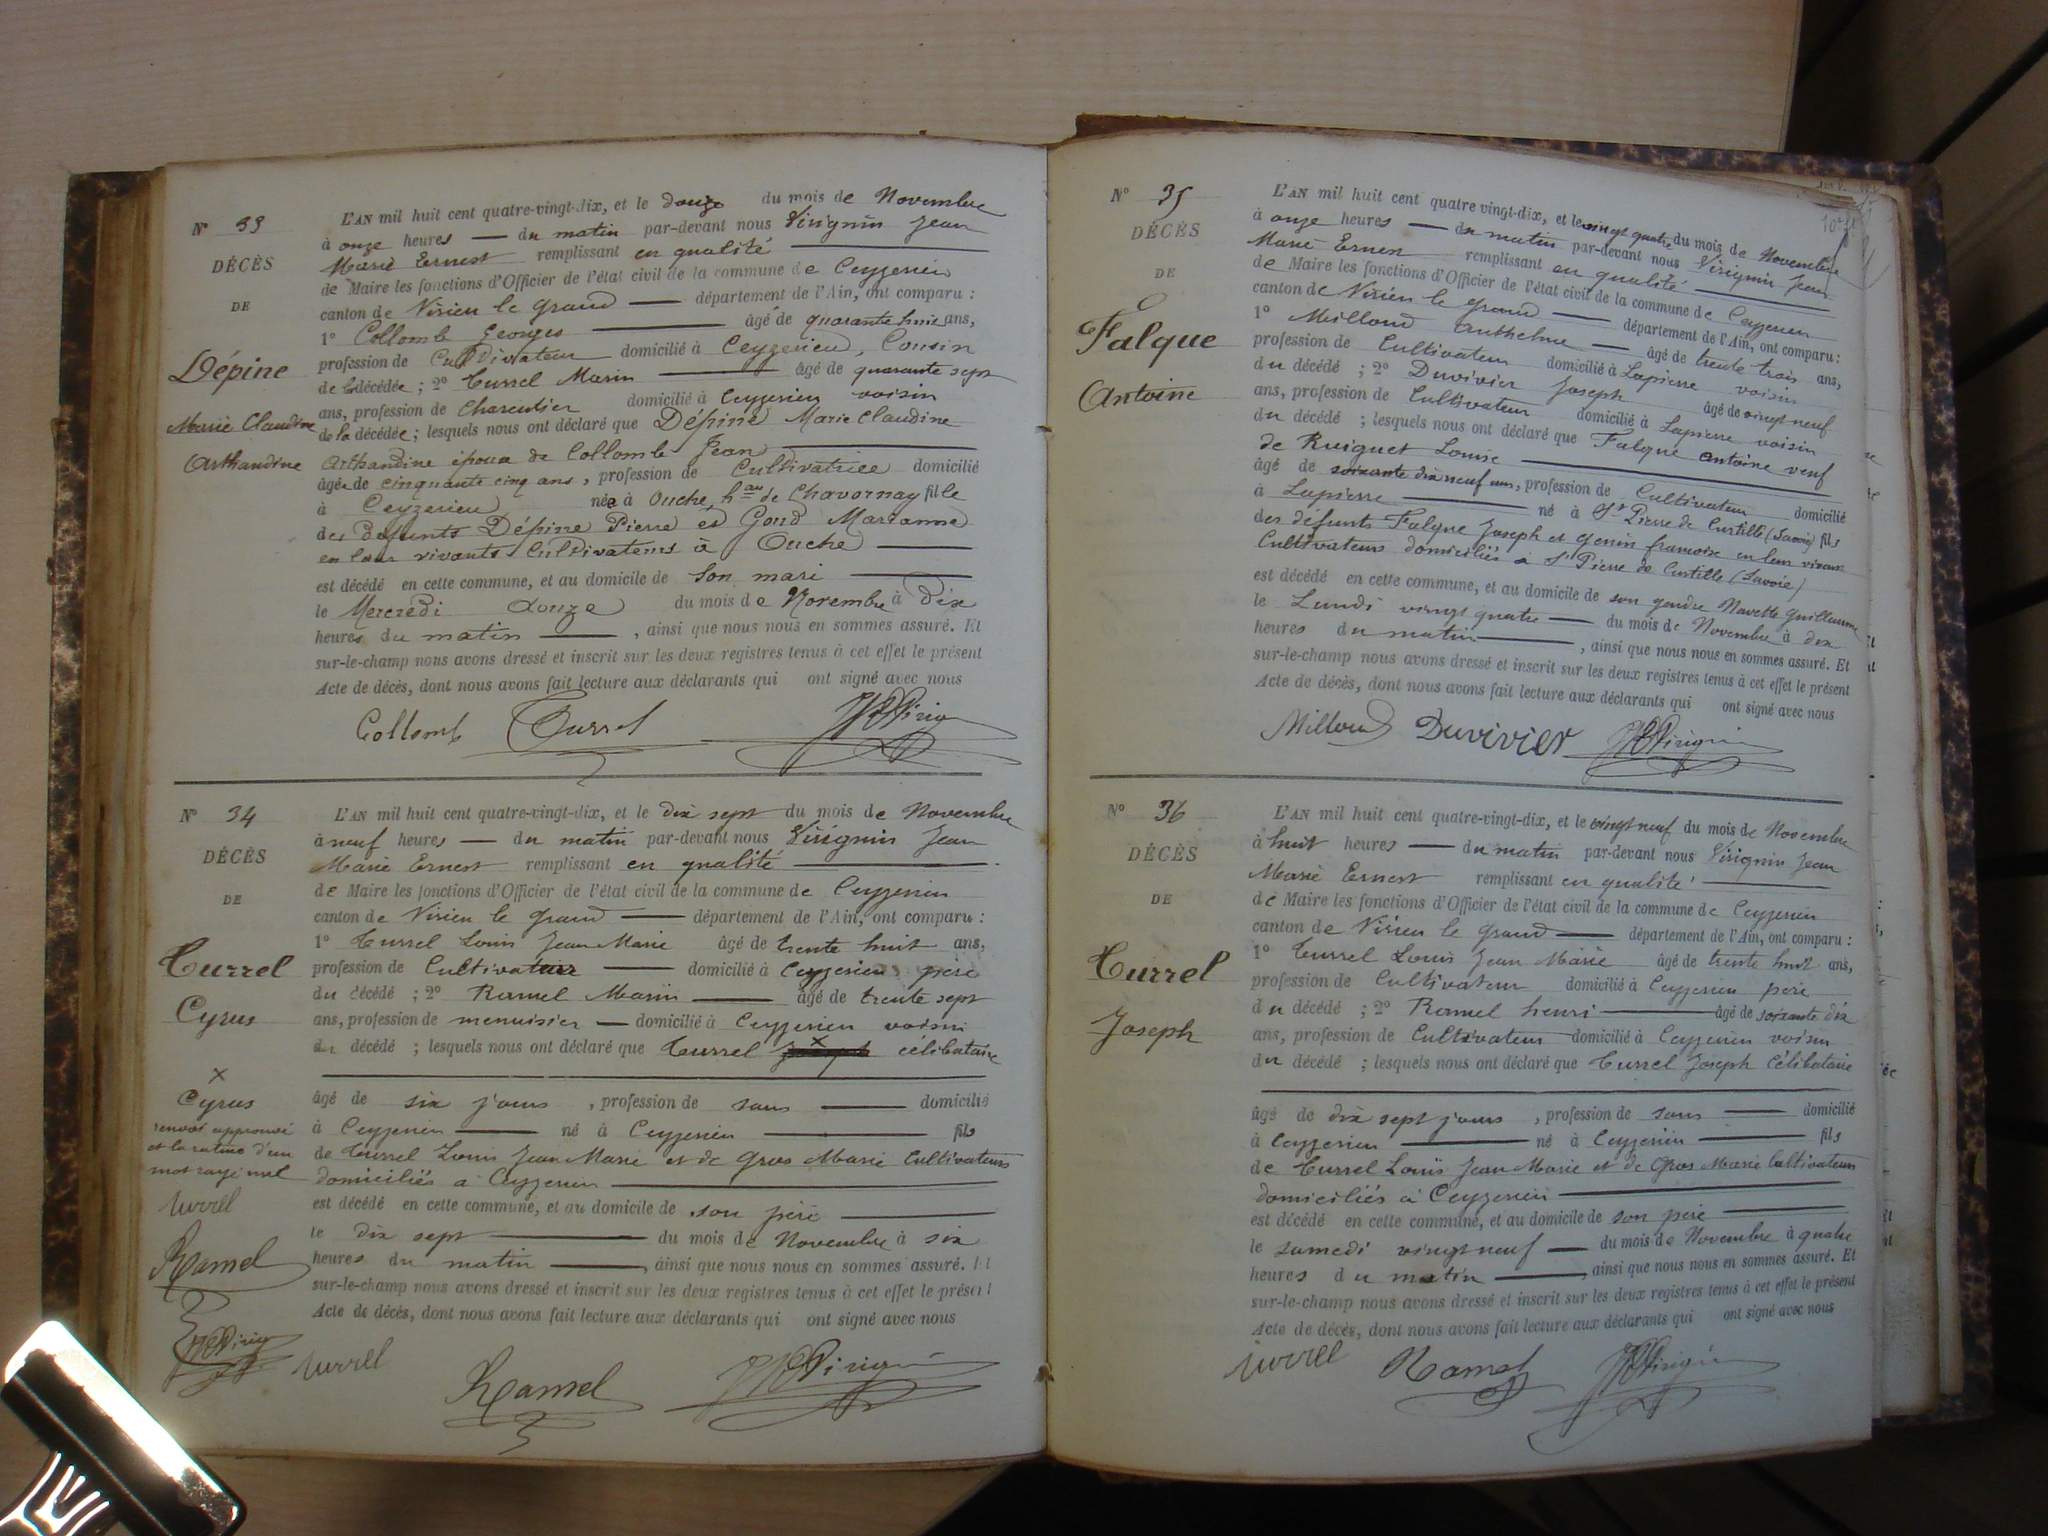 N° 33
DÉCÈS
DE
Dépine
Marie Claudine
Arthandine
L'AN mil huit cent quatre-vingt-dix, et le douze du mois de Novembre
à onze heures — du matin par-devant nous Virignin Jean
Marie Ernest remplissant en qualité
de Maire les fonctions d'Officier de l'état civil de la commune de Ceyzerieu
canton de Virieu le Grand — département de l'Ain, ont comparu :
1° Collomb Georges — âgé de quarante huit ans,
profession de Cultivateur domicilié à Ceyzerieu, Cousin
de la décédée ; 2° Turrel Marin — âgé de quarante sept
ans, profession de Charcutier domicilié à Ceyzerieu voisin
de la décédée ; lesquels nous ont déclaré que Dépine Marie Claudine
Arthandine épouse de Collomb Jean
âgée de cinquante cinq ans, profession de Cultivatrice domicilié
à Ceyzerieu née à Ouche, hau de Chavornay fille
des défunts Dépine Pierre et Gond Marianne
en leur vivants Cultivateurs à Ouche
est décédé en cette commune, et au domicile de Son mari
le Mercredi douze du mois de Novembre à dix
heures du matin —, ainsi que nous nous en sommes assuré. Et
sur-le-champ nous avons dressé et inscrit sur les deux registres tenus à cet effet le présent
Acte de décès, dont nous avons fait lecture aux déclarants qui ont signé avec nous
Collomb Turrel JMEVirignin
N° 34
DÉCÈS
DE
Turrel
Cyrus
L'AN mil huit cent quatre-vingt-dix, et le dix sept du mois de Novembre
à neuf heures — du matin par-devant nous Virignin Jean
Marie Ernest remplissant en qualité
de Maire les fonctions d'Officier de l'état civil de la commune de Ceyzerieu
canton de Virieu le Grand — département de l'Ain, ont comparu :
1° Turrel Louis Jean Marie âgé de trente huit ans,
profession de Cultivateur — domicilié à Ceyzerieu père
du décédé ; 2° Ramel Marin — âgé de trente sept
ans, profession de menuisier — domicilié à Ceyzerieu voisin
du décédé ; lesquels nous ont déclaré que Turrel Joseph x célibataire
x
Cyrus
renvoi approuvé
et la rature d'un
mot rayé nul
Turrel
Ramel
JMEVirignin
âgé de six jours, profession de sans — domicilié
à Ceyzerieu — né à Ceyzerieu — fils
de Turrel Louis Jean Marie et de Gros Marie Cultivateurs
domiciliés à Ceyzerieu
est décédé en cette commune, et au domicile de son père
le dix sept — du mois de Novembre à six
heures du matin —, ainsi que nous nous en sommes assuré. Et
sur-le-champ nous avons dressé et inscrit sur les deux registres tenus à cet effet le présent
Acte de décès, dont nous avons fait lecture aux déclarants qui ont signé avec nous
Turrel Ramel JMEVirignin
N° 35
DÉCÈS
DE
Falque
Antoine
L'AN mil huit cent quatre vingt-dix, et le vingt quatre du mois de Novembre
à onze heures — du matin par-devant nous Virignin Jean
Marie Ernest remplissant en qualité
de Maire les fonctions d'Officier de l'état civil de la commune de Ceyzerieu
canton de Virieu le Grand — département de l'Ain, ont comparu :
1° Milloud Anthelme — âgé de trente trois ans,
profession de Cultivateur domicilié à Lapierre voisin
du décédé ; 2° Duvivier Joseph âgé de vingt neuf
ans, profession de Cultivateur domicilié à Lapierre voisin
du décédé ; lesquels nous ont déclaré que Falque Antoine veuf
de Ruiguet Louise
âgé de soixante dix neuf ans, profession de Cultivateur domicilié
à Lapierre — né à St Pierre de Curtille (Savoie) fils
des défunts Falque Joseph et Genin françoise en leur vivant
Cultivateurs domiciliés à St Pierre de Curtille (Savoie)
est décédé en cette commune, et au domicile de son gendre Navette Guillaume
le Lundi vingt quatre — du mois de Novembre à dix
heures du matin —, ainsi que nous nous en sommes assuré. Et
sur-le-champ nous avons dressé et inscrit sur les deux registres tenus à cet effet le présent
Acte de décès, dont nous avons fait lecture aux déclarants qui ont signé avec nous
Milloud Duvivier JMEVirignin
N° 36
DÉCÈS
DE
Turrel
Joseph
L'AN mil huit cent quatre-vingt-dix, et le vingt neuf du mois de Novembre
à huit heures — du matin par-devant nous Virignin Jean
Marie Ernest remplissant en qualité
de Maire les fonctions d'Officier de l'état civil de la commune de Ceyzerieu
canton de Virieu le Grand — département de l'Ain, ont comparu :
1° Turrel Louis Jean Marie âgé de trente huit ans,
profession de Cultivateur domicilié à Ceyzerieu père
du décédé ; 2° Ramel henri — âgé de soixante dix
ans, profession de Cultivateur domicilié à Ceyzerieu voisin
du décédé ; lesquels nous ont déclaré que Turrel Joseph Célibataire
âgé de dix sept jours, profession de sans — domicilié
à Ceyzerieu — né à Ceyzerieu — fils
de Turrel Louis Jean Marie et de Gros Marie Cultivateurs
domiciliés à Ceyzerieu
est décédé en cette commune, et au domicile de son père
le samedi vingt neuf — du mois de Novembre à quatre
heures du matin —, ainsi que nous nous en sommes assuré. Et
sur-le-champ nous avons dressé et inscrit sur les deux registres tenus à cet effet le présent
Acte de décès, dont nous avons fait lecture aux déclarants qui ont signé avec nous
Turrel Ramel JMEVirignin